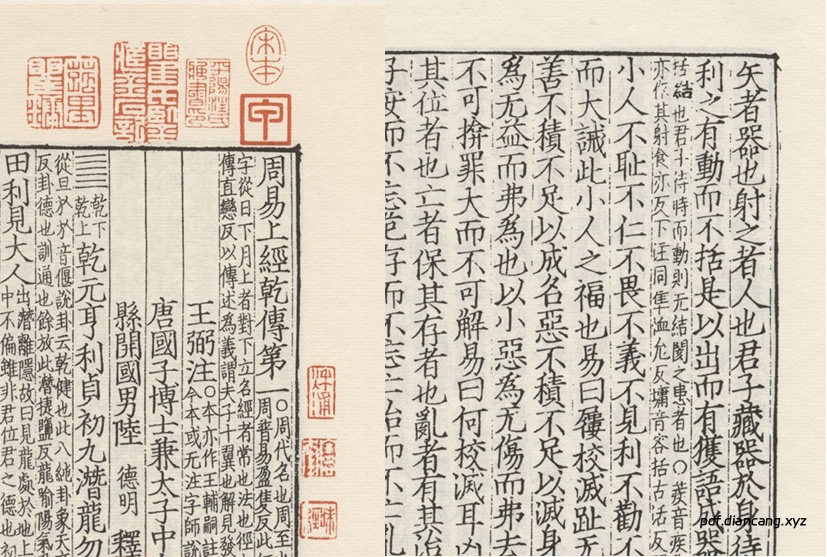 矢者器也射之者人也君子藏器於身待
利之有動而不括是以出而有獲語成器
括結也君子待時而動則无結閡之患者也〇蒺音疾
亦作其射食亦反下注同隼洫允反墉音容括古活反
小人不耻不仁不畏不義不見利不勸不
而大誡此小人之福也易曰屨校滅趾无
善不積不足以成名惡不積不足以滅身
為无益而弗為也以小惡為无傷而弗去
不可揜罪大而不可解易曰何校滅耳凶
其位者也亡者保其存者也亂者有其治
子安而不忘危存而不忘亡治而不忘亂
宋本
周易上經乾傳第一〇周代名也周至也
周普易盈隻反此經
字從日下月上者對下立名經者常也法也徑
傳直戀反以傳述為義謂夫子十翼也解見發
王弼注〇本亦作王輔嗣註
今本或无注字師說
唐國子博士兼太子中
縣開國男陸 德明 釋
乾下
乾上
乾元亨利貞初九潛龍勿
從旦㫃㫃音偃說卦云乾健也此八純卦象天
反卦德也訓通也餘放此潛捷鹽反龍喻陽氣
田利見大人
出潛離隱故曰見龍處於地上
中不偏雖非君位君之德也初
pdf.diancang.xyz